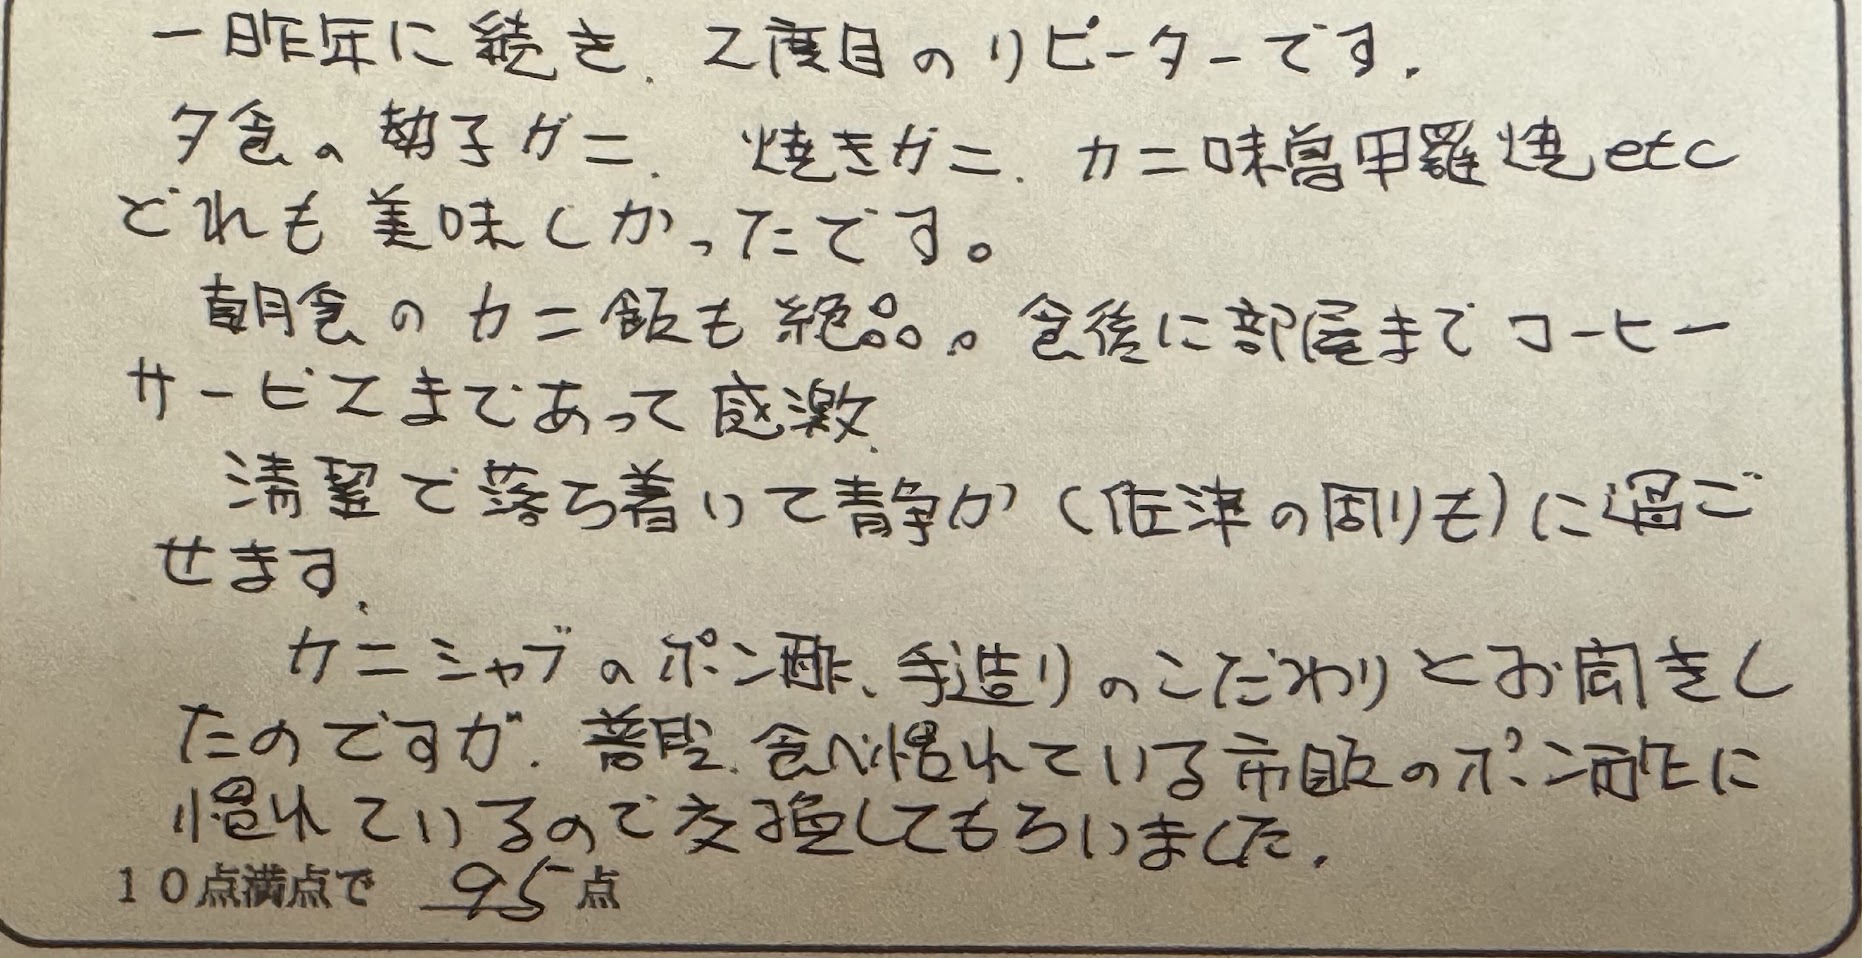 一昨年に続き、2度目のリピーターです。
夕食の勢子ガニ、焼きガニ、カニ味噌甲羅焼etc
どれも美味しかったです。
朝食のカニ飯も絶品。食後に部屋までコーヒー
サービスまであって感激、
清潔で落ち着いて静か(佐津の周りも)に過ご
せます、
カニシャブのポン酢、手造りのこだわりとお聞きし
たのですが、普段、食べ慣れている市販のポン酢に
慣れているので交換してもらいました。
10点満点で 95点